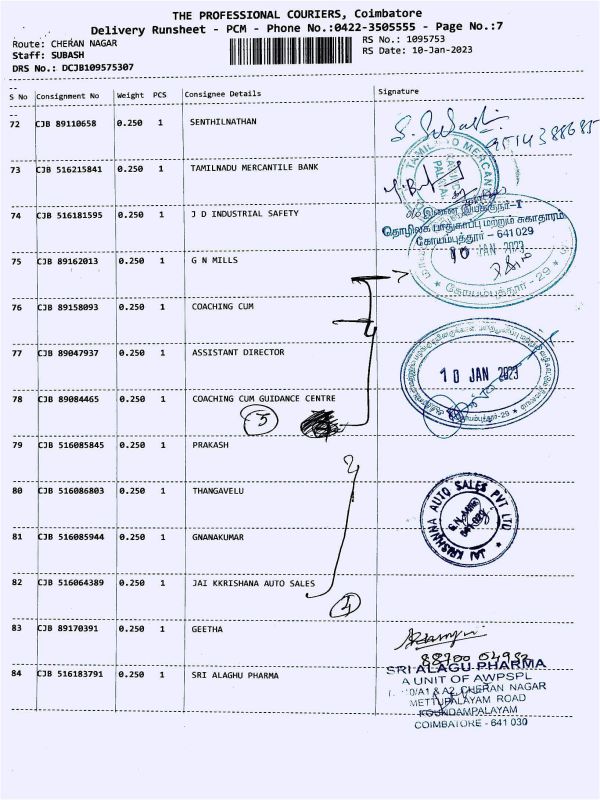 THE PROFESSIONAL COURIERS, Coimbatore
Delivery Runsheet - PCM - Phone No.:0422-3505555 - Page No.:7
Route: CHERAN NAGAR
RS No.: 1095753
Staff: SUBASH
RS Date: 10-Jan-2023
DRS No.: DCJB109575307
S No Consignment No Weight PCS Consignee Details Signature
72 CJB 89110658 0.250 1 SENTHILNATHAN
9514388685
73 CJB 516215841 0.250 1 TAMILNADU MERCANTILE BANK
TAMIL MERCAN
74 CJB 516181595 0.250 1 J D INDUSTRIAL SAFETY
தொழிலக பாதுகாப்பு மற்றும் சுகாதாரம்
கோயம்புத்தூர் - 641029
10 JAN 2023
கோயம்புத்தூர் - 29
75 CJB 89162013 0.250 1 G N MILLS
76 CJB 89158093 0.250 1 COACHING CUM
77 CJB 89047937 0.250 1 ASSISTANT DIRECTOR
10 JAN 2023
78 CJB 89084465 0.250 1 COACHING CUM GUIDANCE CENTRE
79 CJB 516085845 0.250 1 PRAKASH
80 CJB 516086803 0.250 1 THANGAVELU
JAI KRISHNA AUTO SALES PVT LTD
81 CJB 516085944 0.250 1 GNANAKUMAR
82 CJB 516064389 0.250 1 JAI KKRISHANA AUTO SALES
4
83 CJB 89170391 0.250 1 GEETHA
84 CJB 516183791 0.250 1 SRI ALAGHU PHARMA
SRI ALAGU PHARMA
A UNIT OF AWPSPL
CHERAN NAGAR
METTUPALAYAM ROAD
KOUNDAMPALAYAM
COIMBATORE - 641 030